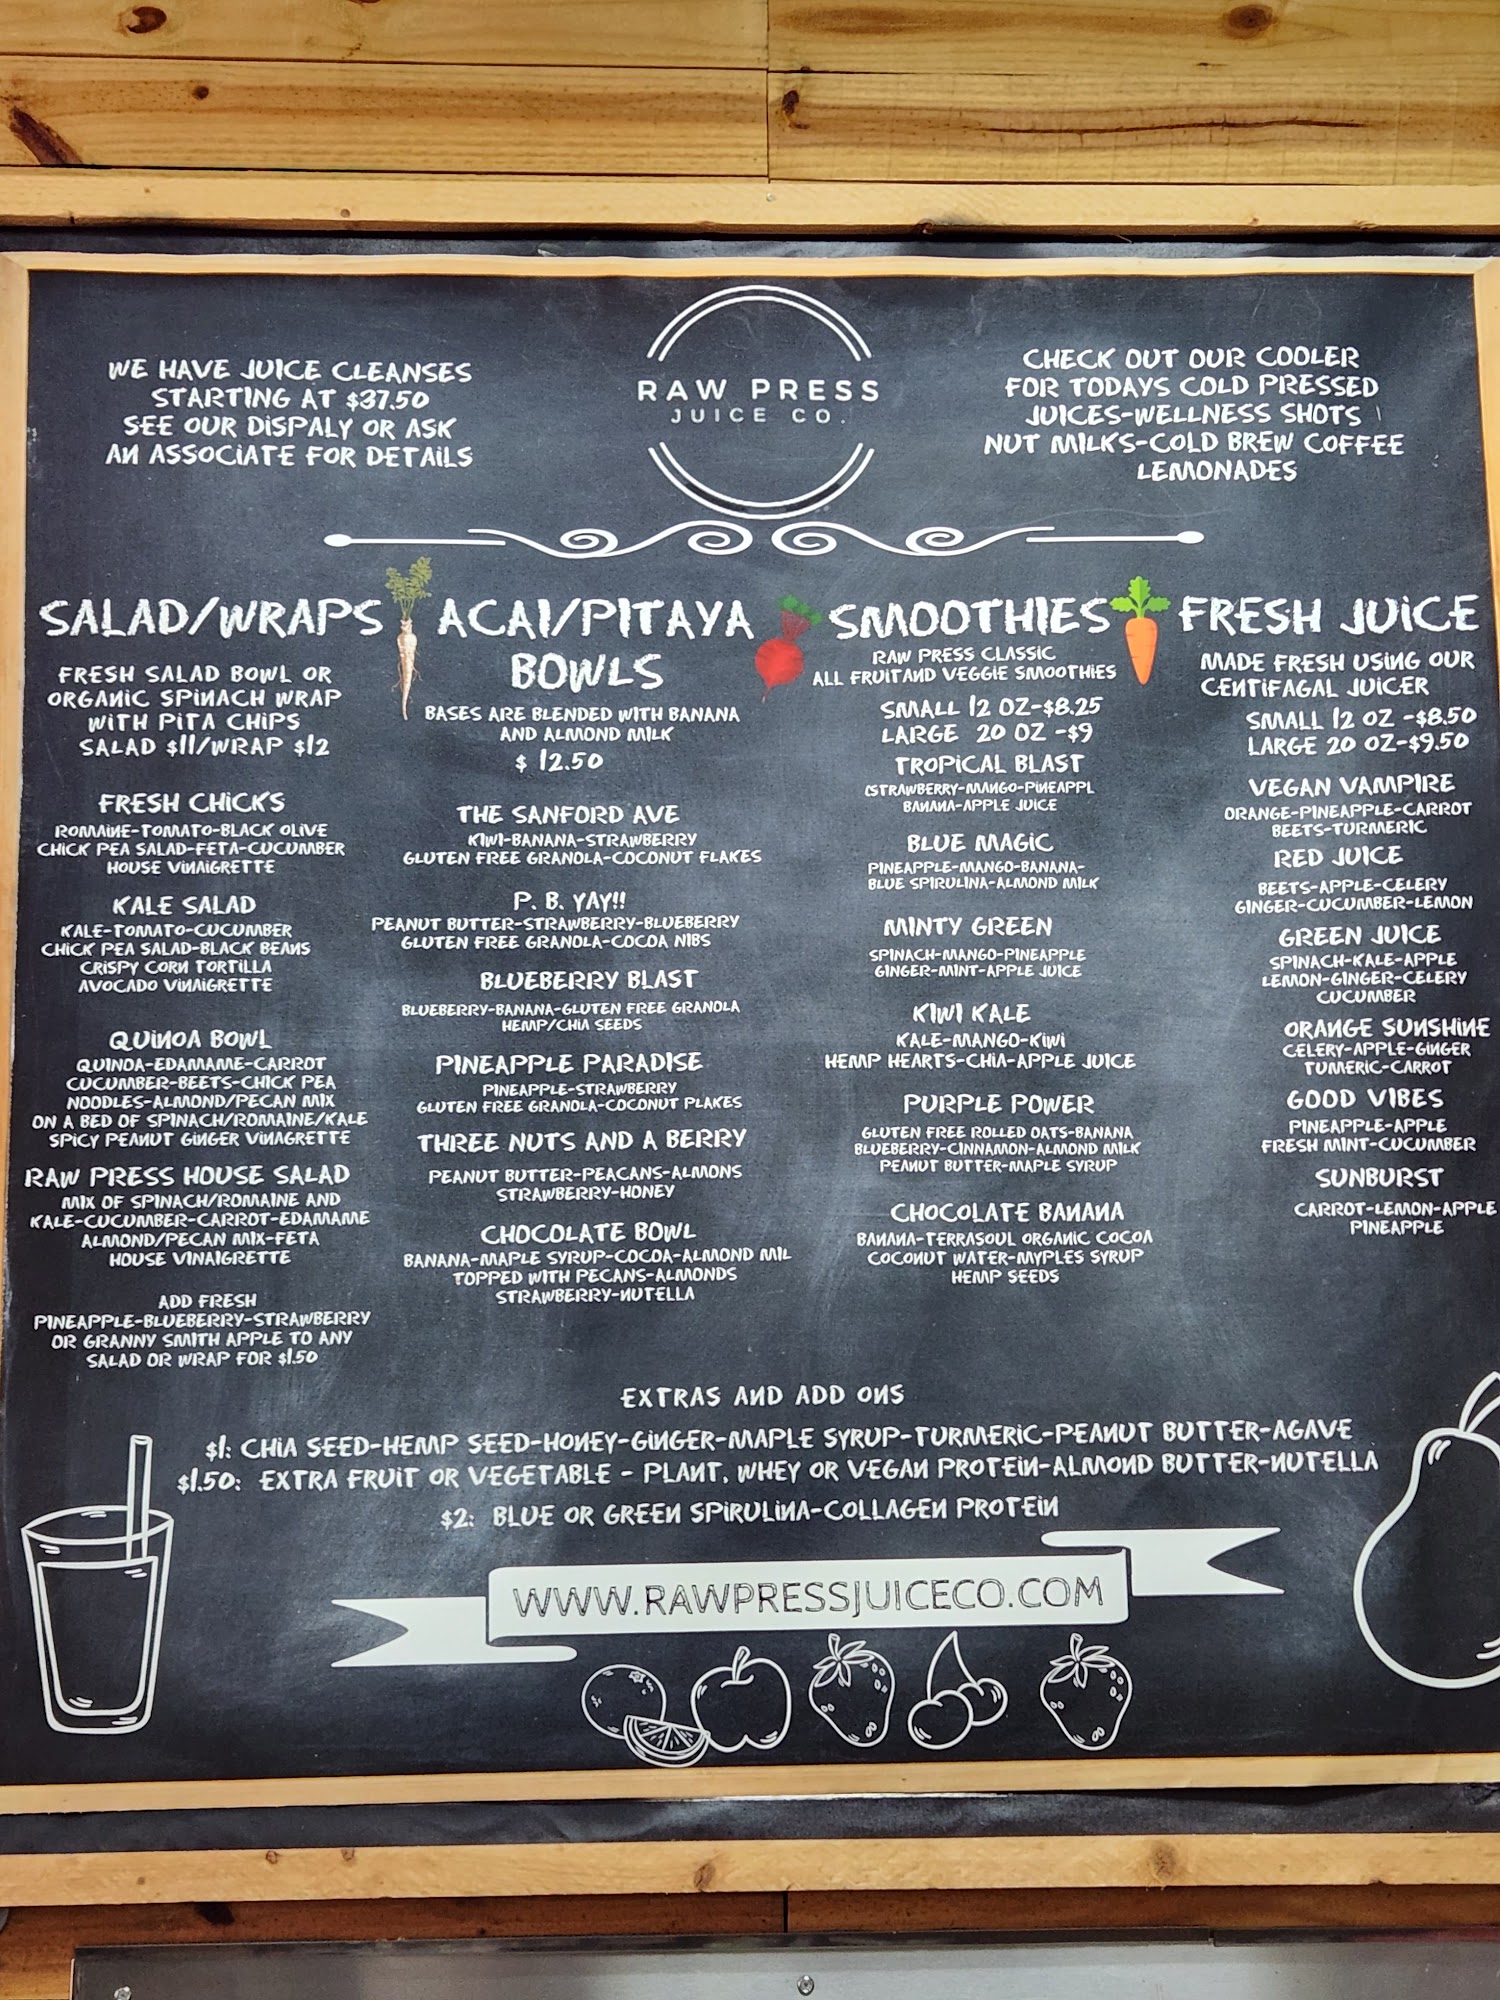 WE HAVE JUICE CLEANSES
STARTING AT $37.50
SEE OUR DISPALY OR ASK
AN ASSOCIATE FOR DETAILS
RAW PRESS
JUICE CO.
CHECK OUT OUR COOLER
FOR TODAYS COLD PRESSED
JUICES-WELLNESS SHOTS
NUT MILKS-COLD BREW COFFEE
LEMONADES
SALAD/WRAPS
FRESH SALAD BOWL OR
ORGANIC SPINACH WRAP
WITH PITA CHIPS
SALAD $11/WRAP $12
FRESH CHICKS
ROMAINE-TOMATO-BLACK OLIVE
CHICK PEA SALAD-FETA-CUCUMBER
HOUSE VINAIGRETTE
KALE SALAD
KALE-TOMATO-CUCUMBER
CHICK PEA SALAD-BLACK BEANS
CRISPY CORN TORTILLA
AVOCADO VINAIGRETTE
QUINOA BOWL
QUINOA-EDAMAME-CARROT
CUCUMBER-BEETS-CHICK PEA
NOODLES-ALMOND/PECAN MIX
ON A BED OF SPINACH/ROMAINE/KALE
SPICY PEANUT GINGER VINAGRETTE
RAW PRESS HOUSE SALAD
MIX OF SPINACH/ROMAINE AND
KALE-CUCUMBER-CARROT-EDAMAME
ALMOND/PECAN MIX-FETA
HOUSE VINAIGRETTE
ADD FRESH
PINEAPPLE-BLUEBERRY-STRAWBERRY
OR GRANNY SMITH APPLE TO ANY
SALAD OR WRAP FOR $1.50
ACAI/PITAYA
BOWLS
BASES ARE BLENDED WITH BANANA
AND ALMOND MILK
$ 12.50
THE SANFORD AVE
KIWI-BANANA-STRAWBERRY
GLUTEN FREE GRANOLA-COCONUT FLAKES
P. B. YAY!!
PEANUT BUTTER-STRAWBERRY-BLUEBERRY
GLUTEN FREE GRANOLA-COCOA NIBS
BLUEBERRY BLAST
BLUEBERRY-BANANA-GLUTEN FREE GRANOLA
HEMP/CHIA SEEDS
PINEAPPLE PARADISE
PINEAPPLE-STRAWBERRY
GLUTEN FREE GRANOLA-COCONUT PLAKES
THREE NUTS AND A BERRY
PEANUT BUTTER-PEACANS-ALMONS
STRAWBERRY-HONEY
CHOCOLATE BOWL
BANANA-MAPLE SYRUP-COCOA-ALMOND MIL
TOPPED WITH PECANS-ALMONDS
STRAWBERRY-NUTELLA
SMOOTHIES
RAW PRESS CLASSIC
ALL FRUITAND VEGGIE SMOOTHIES
SMALL 12 OZ-$8.25
LARGE 20 OZ -$9
TROPICAL BLAST
(STRAWBERRY-MANGO-PINEAPPL
BANANA-APPLE JUICE
BLUE MAGIC
PINEAPPLE-MANGO-BANANA-
BLUE SPIRULINA-ALMOND MILK
MINTY GREEN
SPINACH-MANGO-PINEAPPLE
GINGER-MINT-APPLE JUICE
KIWI KALE
KALE-MANGO-KIWI
HEMP HEARTS-CHIA-APPLE JUICE
PURPLE POWER
GLUTEN FREE ROLLED OATS-BANANA
BLUEBERRY-CINNAMON-ALMOND MILK
PEANUT BUTTER-MAPLE SYRUP
CHOCOLATE BANANA
BANANA-TERRASOUL ORGANIC COCOA
COCONUT WATER-MYPLES SYRUP
HEMP SEEDS
FRESH JUICE
MADE FRESH USING OUR
CENTIFAGAL JUICER
SMALL 12 OZ -$8.50
LARGE 20 OZ-$9.50
VEGAN VAMPIRE
ORANGE-PINEAPPLE-CARROT
BEETS-TURMERIC
RED JUICE
BEETS-APPLE-CELERY
GINGER-CUCUMBER-LEMON
GREEN JUICE
SPINACH-KALE-APPLE
LEMON-GINGER-CELERY
CUCUMBER
ORANGE SUNSHINE
CELERY-APPLE-GINGER
TUMERIC-CARROT
GOOD VIBES
PINEAPPLE-APPLE
FRESH MINT-CUCUMBER
SUNBURST
CARROT-LEMON-APPLE
PINEAPPLE
EXTRAS AND ADD ONS
$1: CHIA SEED-HEMP SEED-HONEY-GINGER-MAPLE SYRUP-TURMERIC-PEANUT BUTTER-AGAVE
$1.50: EXTRA FRUIT OR VEGETABLE - PLANT, WHEY OR VEGAN PROTEIN-ALMOND BUTTER-NUTELLA
$2: BLUE OR GREEN SPIRULINA-COLLAGEN PROTEIN
WWW.RAWPRESSJUICECO.COM